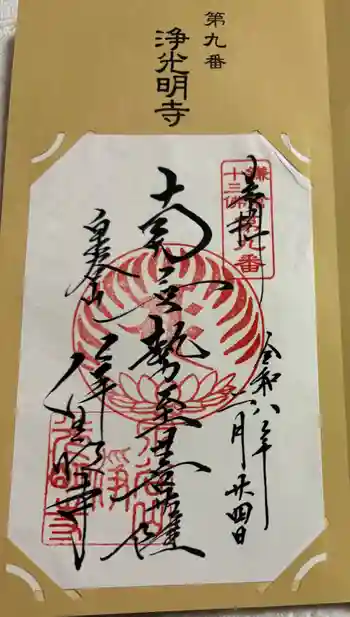 第九番
浄光明寺
奉拝
鎌倉
十三佛
第九番
令和八年
二月廿四日
南無勢至菩薩
泉谷山
浄光明寺